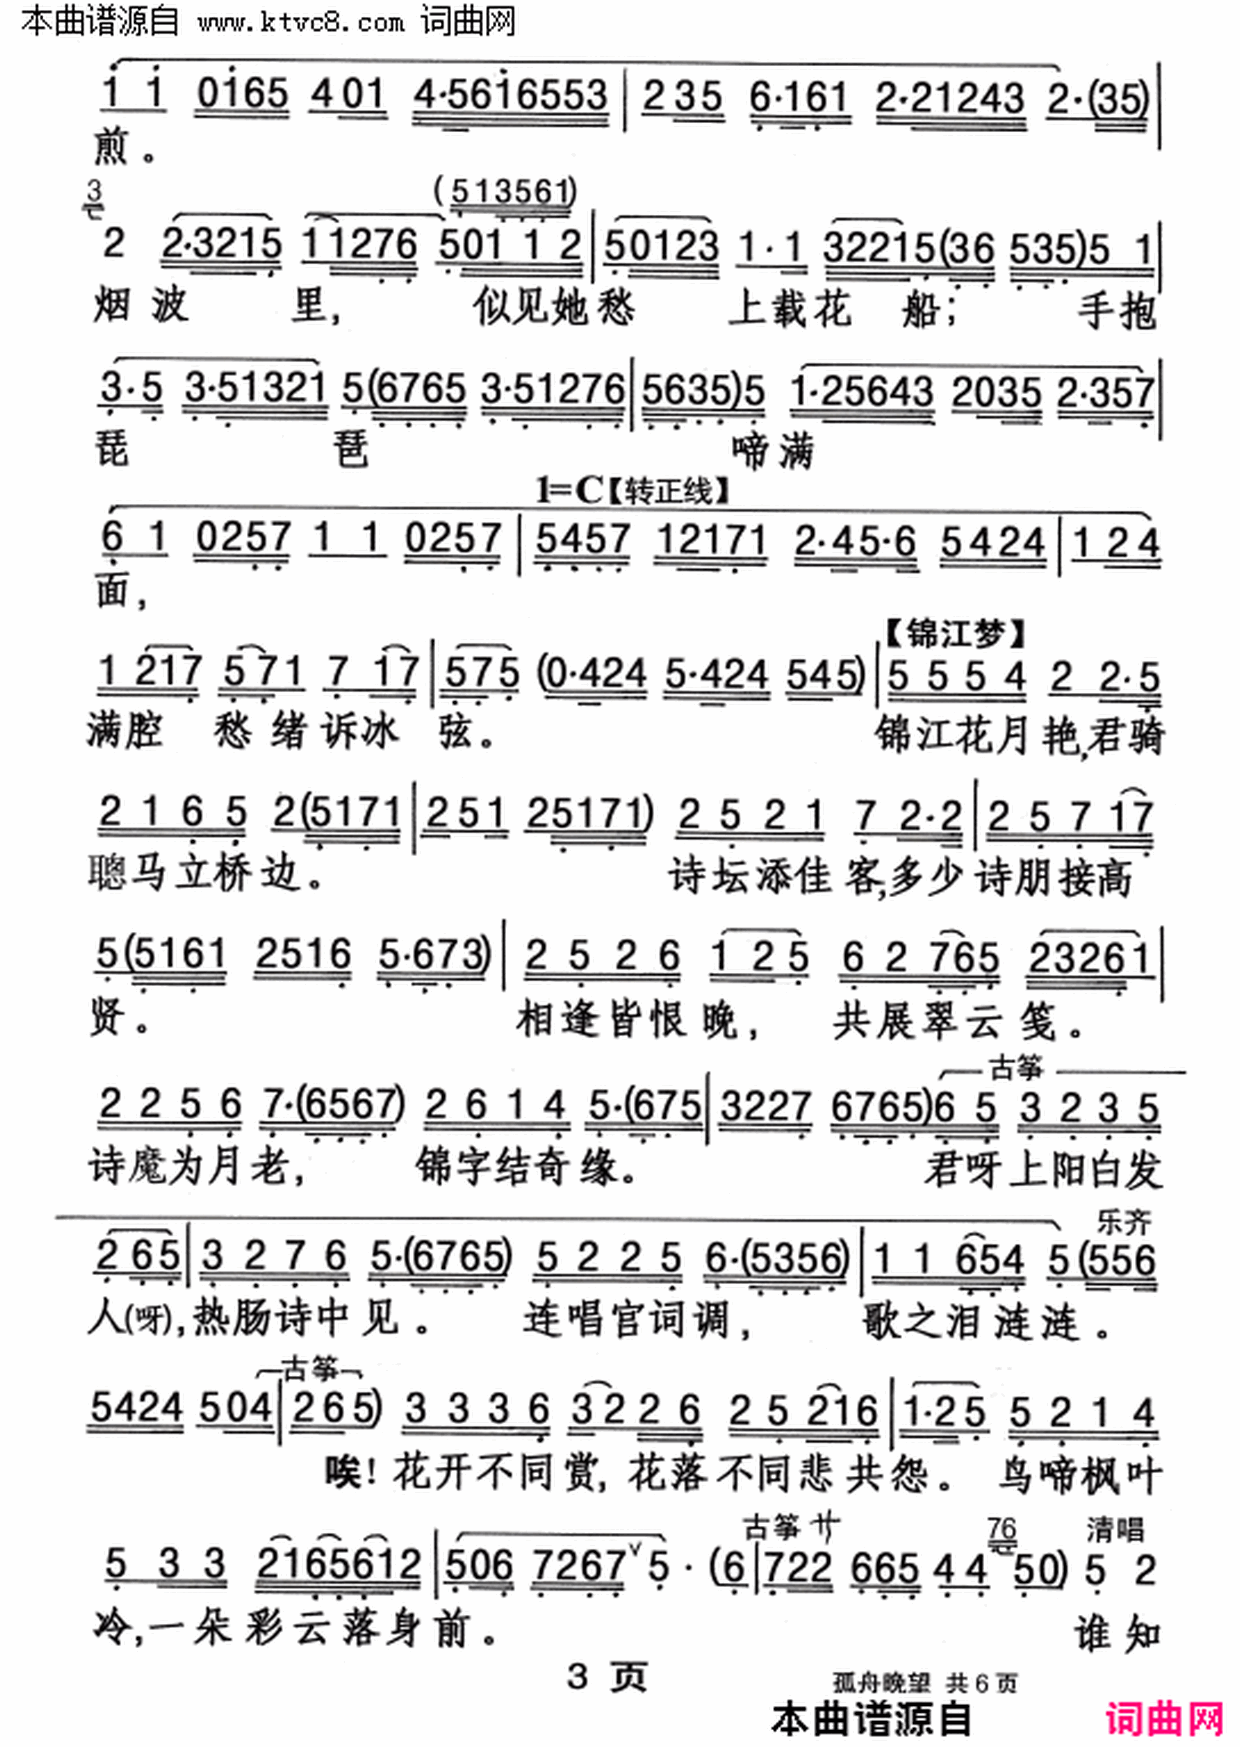 本曲谱源自 www.ktvc8.com 词曲网
1 1 0165 401 4·56i6553 | 235 6·161 2·21243 2·(35) |
煎。
3 (513561)
2 2·3215 11276 501 1 2 | 50123 1·1 32215(36 535)5 1 |
烟波 里, 似见她愁 上载花 船; 手抱
3·5 3·51321 5(6765 3·51276 | 5635)5 1·25643 2035 2·357 |
琵 琶 啼满
1=C【转正线】
6 1 0257 1 1 0257 | 5457 12171 2·45·6 5424 | 124
面,
【锦江梦】
1 217 571 7 17 | 575 (0·424 5·424 545) | 5554 2 2·5
满腔 愁绪诉冰 弦。 锦江花月艳,君骑
2165 2(5171 | 251 25171) 2521 7 2·2 | 25717
骢马立桥边。 诗坛添佳客,多少诗朋接高
5(5161 2516 5·673) | 2526 125 62765 23261 |
贤。 相逢皆恨晚, 共展翠云笺。
古筝
2256 7·(6567) 2614 5·(675 | 3227 6765)65 3235
诗魔为月老, 锦字结奇缘。 君呀上阳白发
乐齐
265 | 3276 5·(6765) 5225 6·(5356) | 11654 5(556
人(呀),热肠诗中见。 连唱宫词调, 歌之泪涟涟。
古筝
5424 504 | 265) 3336 3226 25216 | 1·25 5214
唉!花开不同赏,花落不同悲共怨。 鸟啼枫叶
古筝 サ 76 清唱
5 33 2165612 | 506 7267ˇ5·(6 | 722 665 44 50) 5 2
冷,一朵彩云落身前。 谁知
3 页
孤舟晚望 共6页
本曲谱源自 词曲网